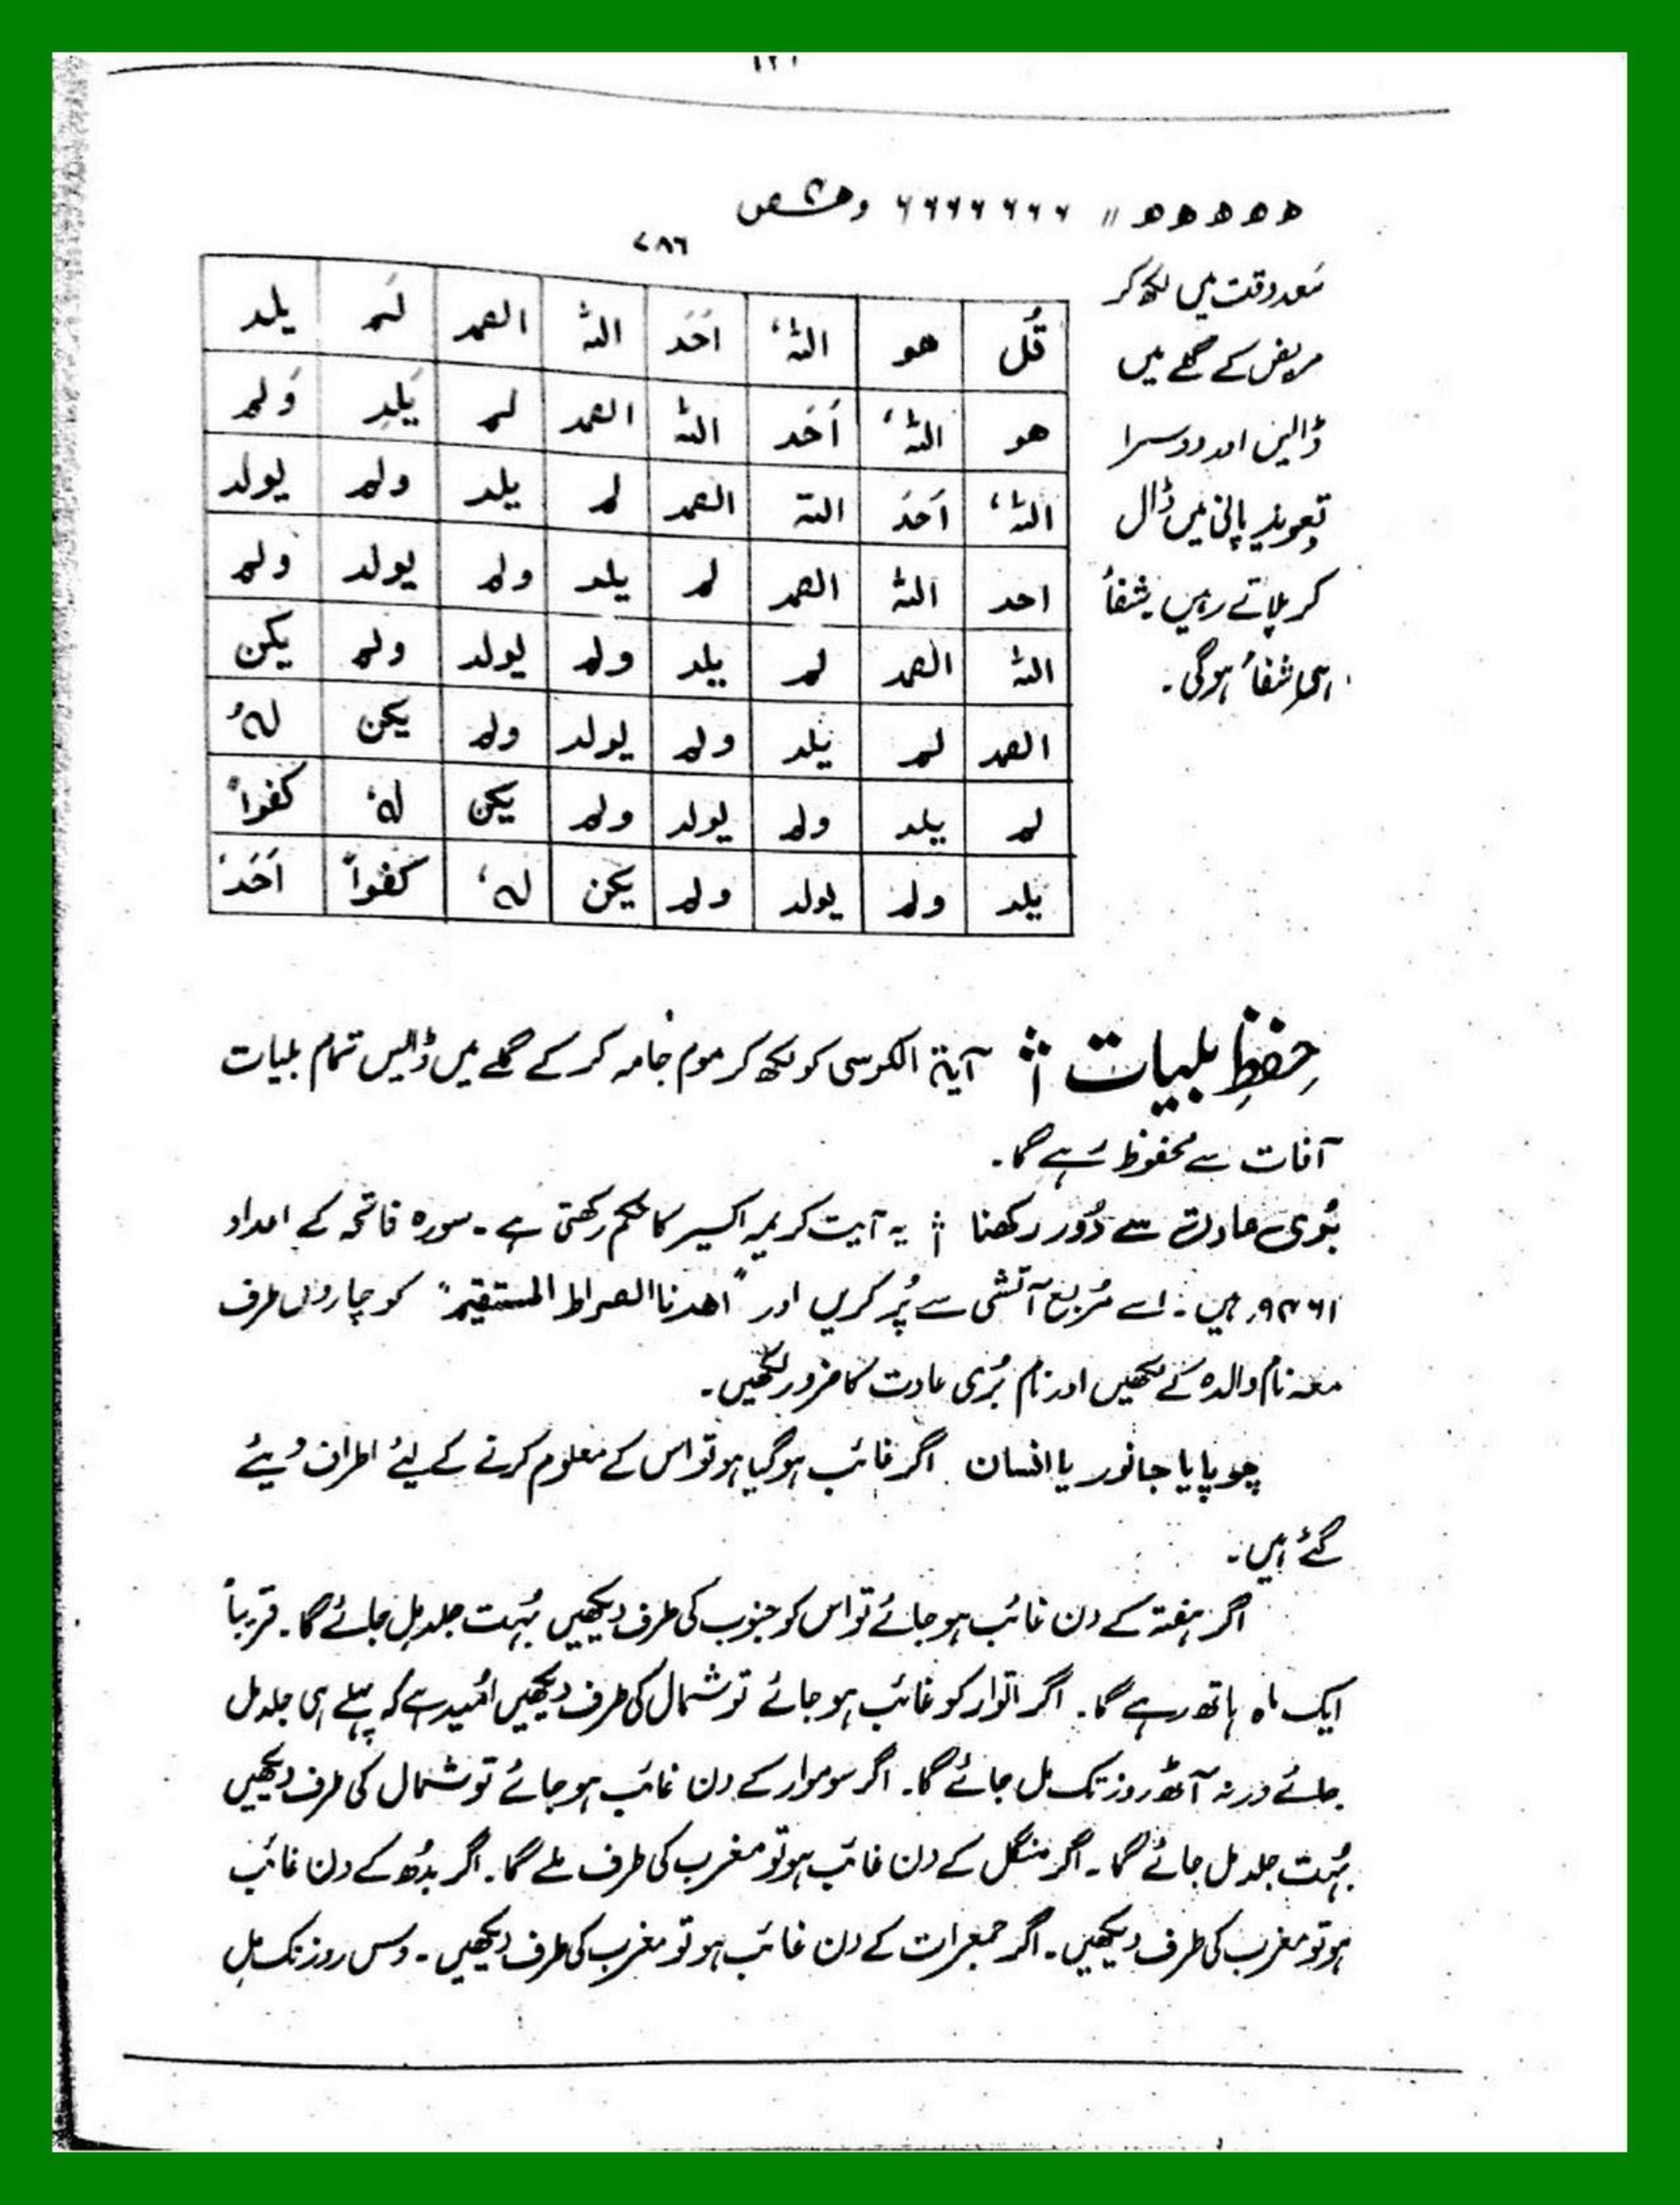 ۱۲۱
ھ ھ ھ ھ ھ // ۶۶۶ ۶۶۶۶
۷۸۶
سعد وقت میں لکھ کر
مریض کے گلے میں
ڈالیں اور دوسرا
تعویذ پانی میں ڈال
کر پلاتے رہیں شفاُ
شفاُ ہوگی۔
قُل ھو اللہُ اَحَد اللہ الصمد لَم یلد
ھو اللہُ اَحَد اللہ الصمد لم یَلِد وَلم
اللہُ اَحَد اللہ الصمد لم یلد ولم یولد
احد اللہ الصمد لم یلد ولم یولد ولم
اللہ الصمد لم یلد ولم یولد ولم یکن
الصمد لم یلد ولم یولد ولم یکن لہُ
لم یلد ولم یولد ولم یکن لہُ کفواً
یلد ولم یولد ولم یکن لہُ کفواً اَحَد
حِفظِ بلیات : آیۃ الکرسی کو لکھ کر موم جامہ کر کے گلے میں ڈالیں تمام بلیات
آفات سے محفوظ رہے گا۔
بُری عادت سے دُور رکھنا : یہ آیت کریمہ اکسیر کا حکم رکھتی ہے۔ سورہ فاتحہ کے اعداد
۹۴۶۱ ہیں۔ اسے مُربع آتشی سے پُر کریں اور "اھدنا الصراط المستقیم" کو چاروں طرف
معہ نام والدہ کے لکھیں اور نام بُری عادت کا ضرور لکھیں۔
چوپایا جانور یا انسان اگر غائب ہو گیا ہو تو اس کے معلوم کرنے کے لیئے اطراف دیئے
گئے ہیں۔
اگر ہفتہ کے دن غائب ہو جائے تو اس کو جنوب کی طرف دیکھیں بہت جلد مل جائے گا۔ قریباً
ایک ماہ ہاتھ رہے گا۔ اگر اتوار کو غائب ہو جائے تو شمال کی طرف دیکھیں اُمید ہے کہ پہلے ہی جلد مل
جائے ورنہ آٹھ روز تک مل جائے گا۔ اگر سوموار کے دن غائب ہو جائے تو شمال کی طرف دیکھیں
بہت جلد مل جائے گا۔ اگر منگل کے دن غائب ہو تو مغرب کی طرف ملے گا۔ اگر بدُھ کے دن غائب
ہو تو مغرب کی طرف دیکھیں۔ اگر جمعرات کے دن غائب ہو تو مغرب کی طرف دیکھیں۔ دس روز تک مل